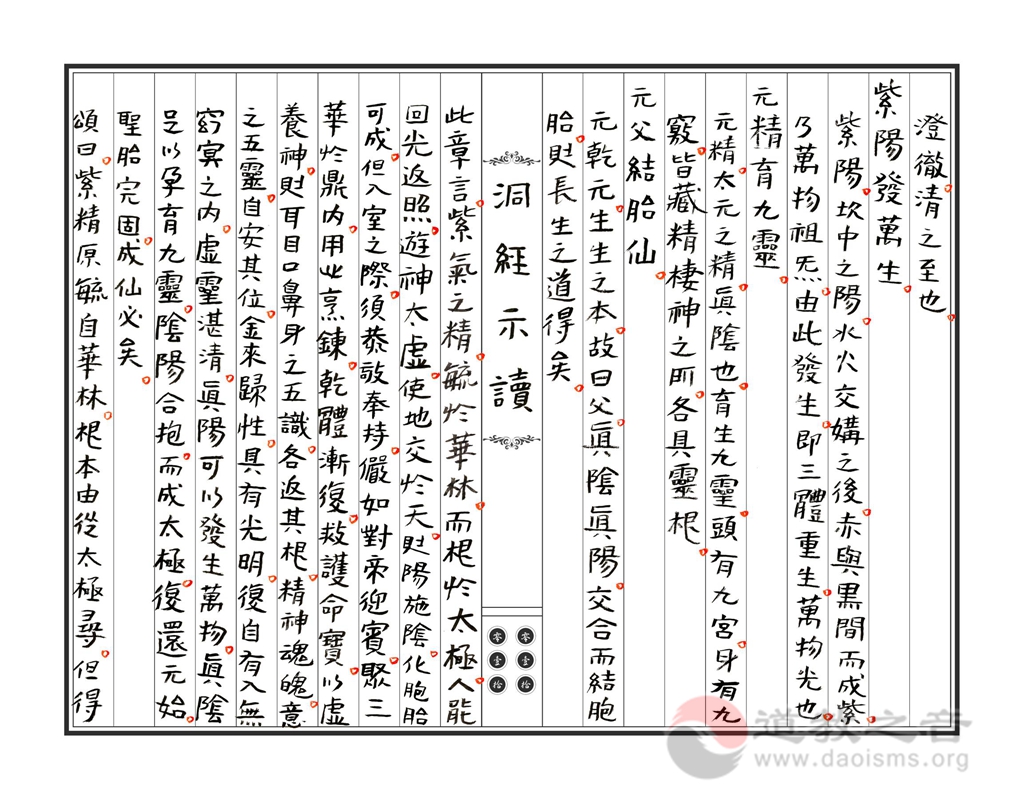 澄徹清之至也
紫陽發萬生
紫陽坎中之陽水火交媾之後赤與黑間而成紫
乃萬物祖炁由此發生即三體重生萬物光也
元精育九靈
元精太元之精眞陰也育生九靈頭有九宮身有九
竅皆藏精棲神之所各具靈根
元父結胎仙
元乾元生生之本故曰父眞陰眞陽交合而結胞
胎則長生之道得矣
洞經示讀
零零
壹壹
拾拾
此章言紫氣之精毓於華林而根於太極人能
回光返照遊神太虛使地交於天則陽施陰化胞胎
可成但入室之際須恭敬奉持儼如對帝迎賓聚三
華於鼎内用此烹鍊乾體漸復救護命寶以虛
養神則耳目口鼻身之五識各返其根精神魂魄意
之五靈自安其位金來歸性具有光明復自有入無
窈冥之内虛靈湛清眞陽可以發生萬物眞陰
足以孕育九靈陰陽合抱而成太極復還元始
聖胎完固成仙必矣
頌曰紫精原毓自華林根本由從太極尋但得
道教之音
www.daoisms.org